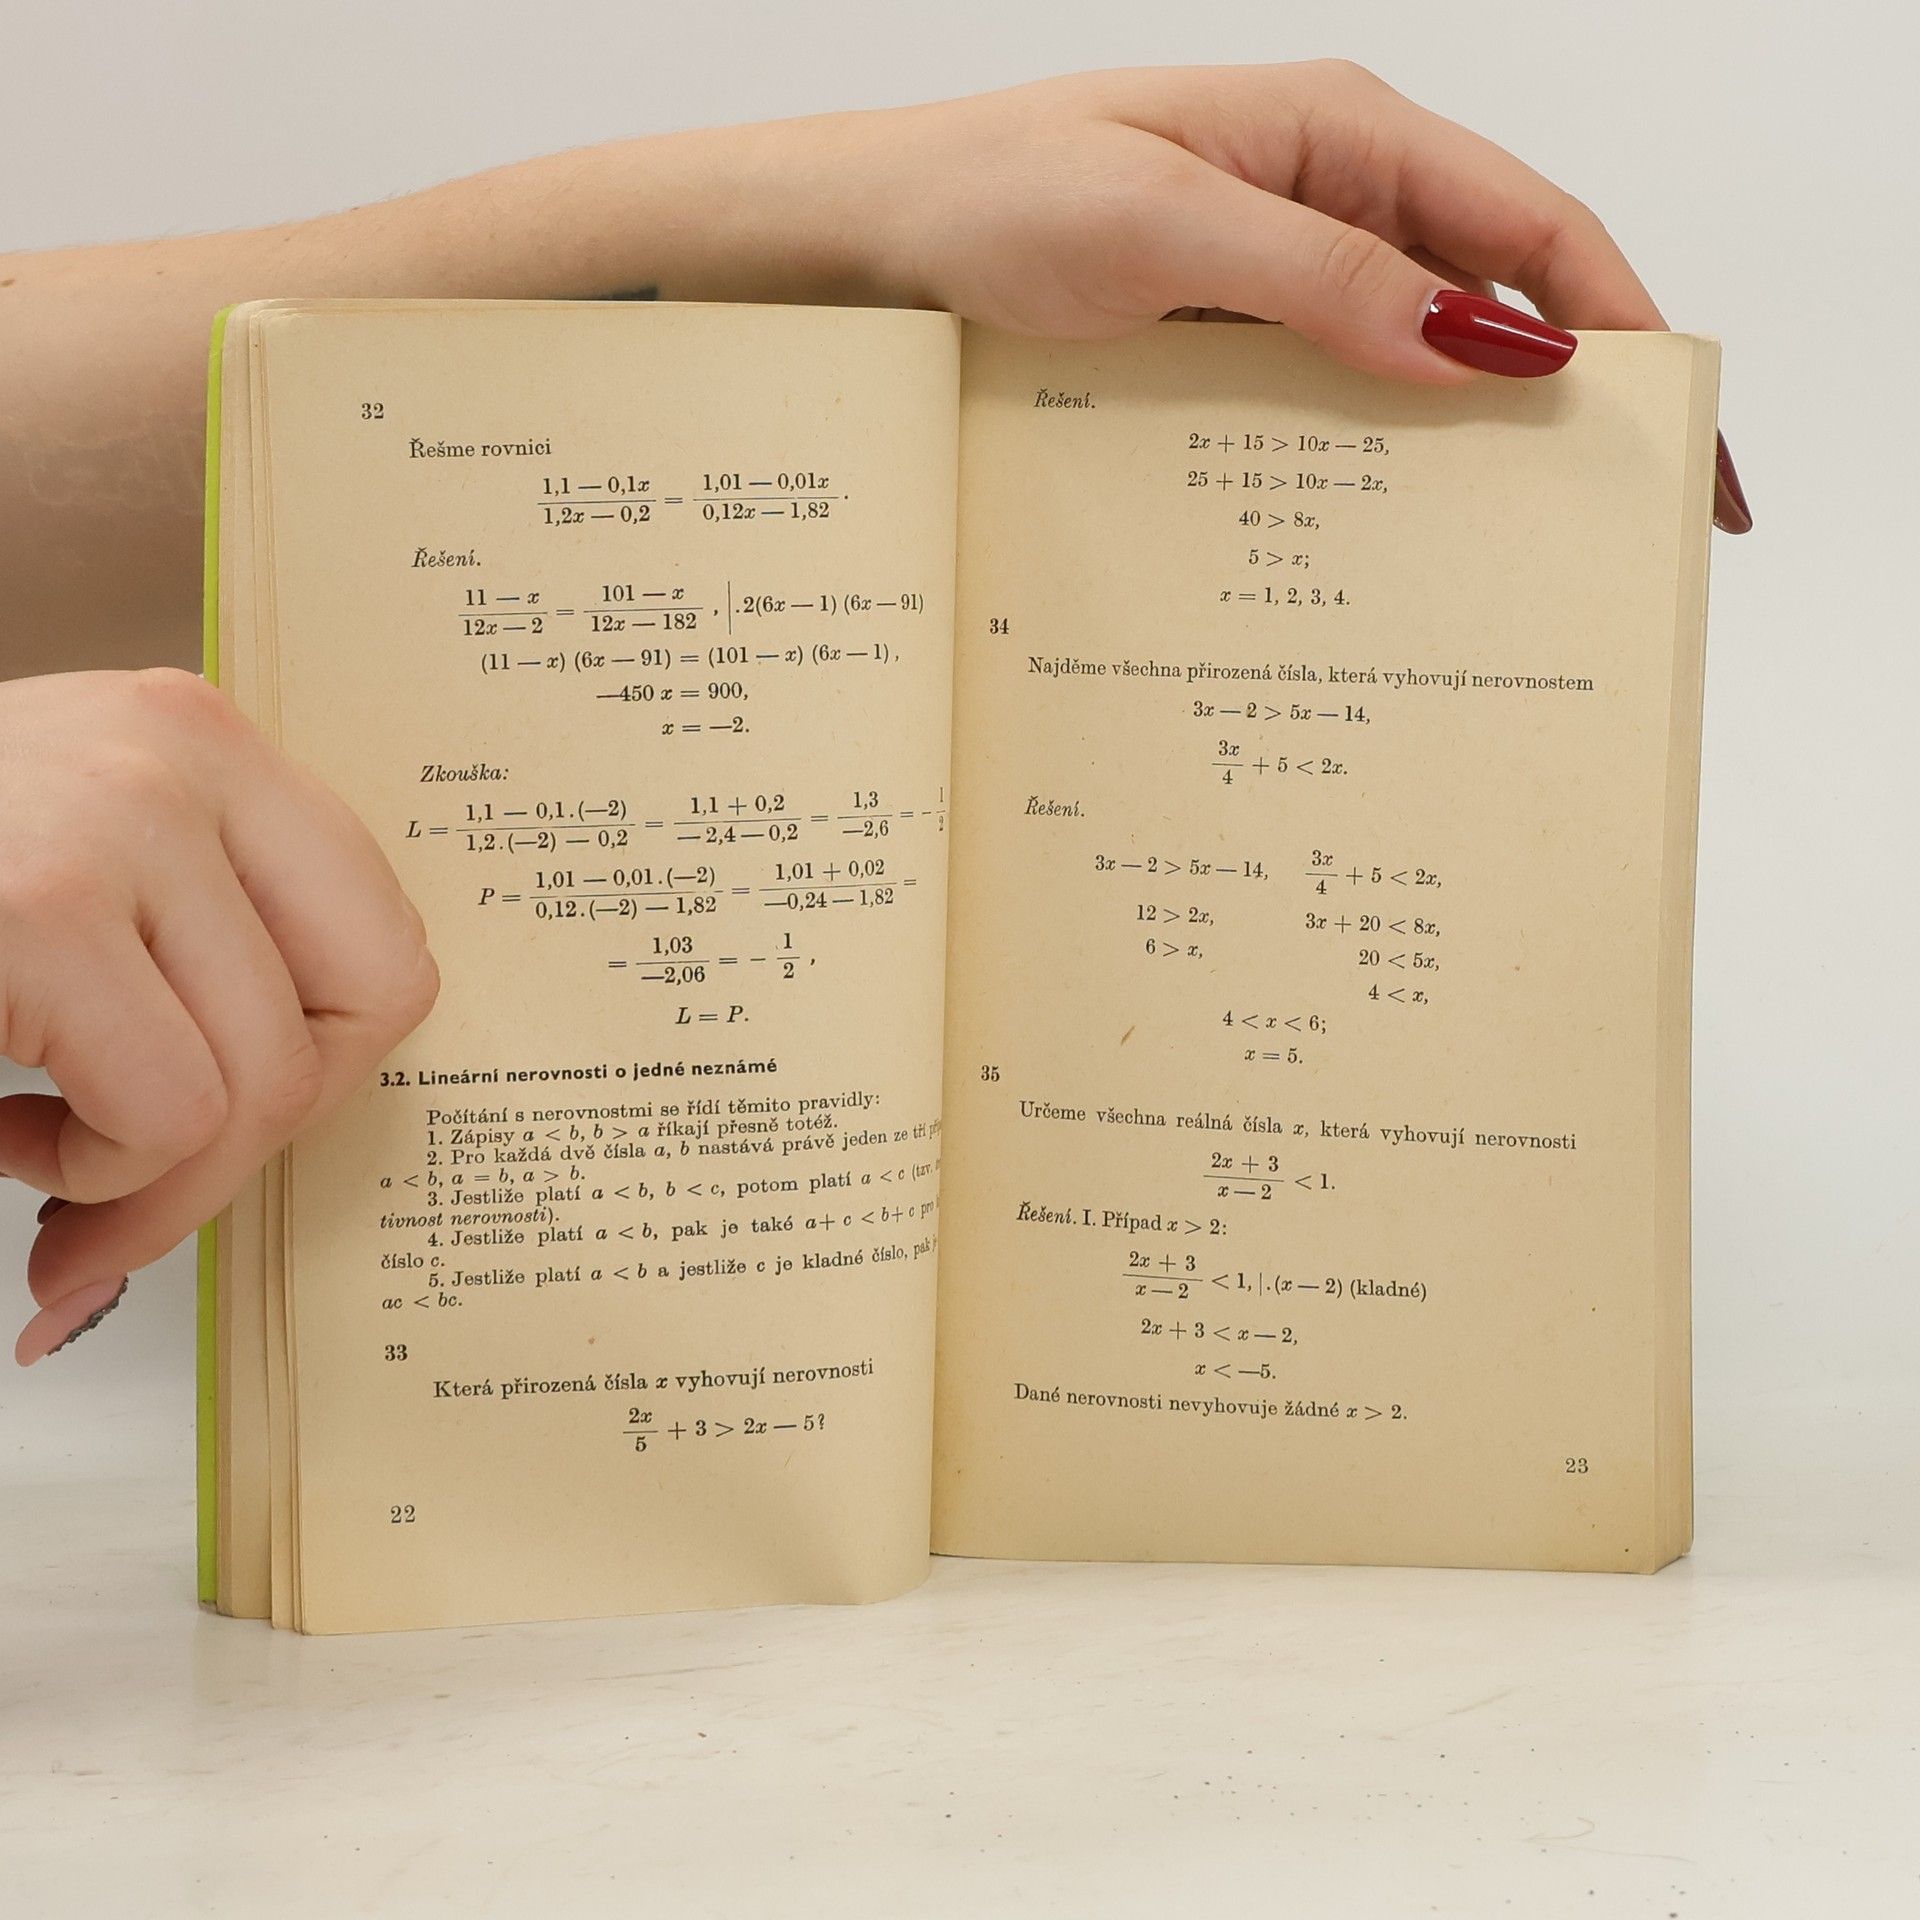 32
Řešme rovnici
1,1 — 0,1x / 1,2x — 0,2 = 1,01 — 0,01x / 0,12x — 1,82 .
Řešení.
11 — x / 12x — 2 = 101 — x / 12x — 182 , | .2(6x — 1) (6x — 91)
(11 — x) (6x — 91) = (101 — x) (6x — 1) ,
—450 x = 900,
x = —2.
Zkouška:
L = 1,1 — 0,1.(—2) / 1,2.(—2) — 0,2 = 1,1 + 0,2 / — 2,4 — 0,2 = 1,3 / —2,6 = - 1 / 2
P = 1,01 — 0,01.(—2) / 0,12.(—2) — 1,82 = 1,01 + 0,02 / —0,24 — 1,82 =
= 1,03 / —2,06 = - 1 / 2 ,
L = P.
3.2. Lineární nerovnosti o jedné neznámé
Počítání s nerovnostmi se řídí těmito pravidly:
1. Zápisy a < b, b > a říkají přesně totéž.
2. Pro každá dvě čísla a, b nastává právě jeden ze tří
a < b, a = b, a > b.
3. Jestliže platí a < b, b < c, potom platí a < c (tzv.
tivnost nerovnosti).
4. Jestliže platí a < b, pak je také a+ c < b+ c pro
číslo c.
5. Jestliže platí a < b a jestliže c je kladné číslo, pak
ac < bc.
33
Která přirozená čísla x vyhovují nerovnosti
2x / 5 + 3 > 2x — 5?
22
Řešení.
2x + 15 > 10x — 25,
25 + 15 > 10x — 2x,
40 > 8x,
5 > x;
x = 1, 2, 3, 4.
34
Najděme všechna přirozená čísla, která vyhovují nerovnostem
3x — 2 > 5x — 14,
3x / 4 + 5 < 2x.
Řešení.
3x — 2 > 5x — 14, 3x / 4 + 5 < 2x,
12 > 2x, 3x + 20 < 8x,
6 > x, 20 < 5x,
4 < x,
4 < x < 6;
x = 5.
35
Určeme všechna reálná čísla x, která vyhovují nerovnosti
2x + 3 / x — 2 < 1.
Řešení. I. Případ x > 2:
2x + 3 / x — 2 < 1, | .(x — 2) (kladné)
2x + 3 < x — 2,
x < —5.
Dané nerovnosti nevyhovuje žádné x > 2.
23